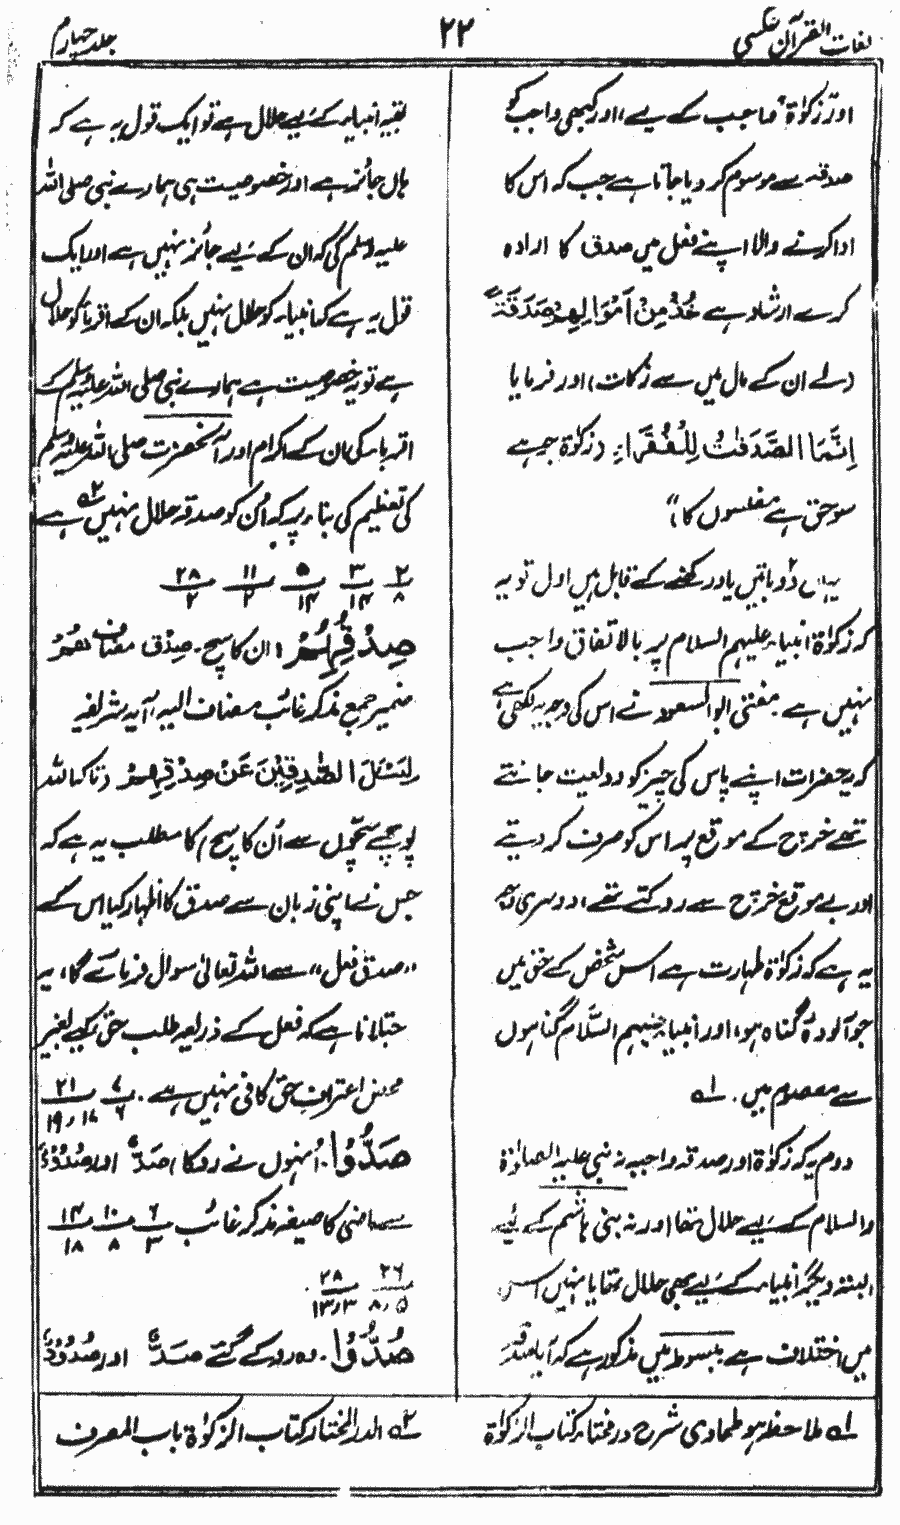 لغات القرآن عکسی
۲۲
جلد چہارم
اور زکوٰۃ ما جب کے لیے، اور کبھی واجب کو
صدقہ سے موسوم کر دیا جاتا ہے جب کہ اس کا
ادا کرنے والا اپنے فعل میں صدق کا ارادہ
کرے ارشاد ہے خُذْ مِنْ اَمْوَالِهِمْ صَدَقَةً
(لے ان کے مال میں سے زکات) اور فرمایا
اِنَّمَا الصَّدَقٰتُ لِلْفُقَرَاءِ (زکوٰۃ جو ہے
سو حق ہے مفلسوں کا)
یہاں دو باتیں یاد رکھنے کے قابل ہیں اول تو یہ
کہ زکوٰۃ انبیاء علیہم السلام پر بالاتفاق واجب
نہیں ہے۔ مفتی ابو السعود نے اس کی وجہ یہ لکھی ہے
کہ یہ حضرات اپنے پاس کی چیز کو ودیعت جانتے
تھے خرچ کے موقع پر اس کو صرف کر دیتے
اور بے موقع خرچ سے روکتے تھے، دوسری وجہ
یہ ہے کہ زکوٰۃ طہارت ہے اس شخص کے حق میں
جو آلودۂ گناہ ہو، اور انبیاء علیہم السلام گناہوں
سے معصوم ہیں۔ ۱ھ
دوم یہ کہ زکوٰۃ اور صدقہ واجبہ نہ نبی علیہ الصلوٰۃ
والسلام کے لیے حلال تھا اور نہ بنی ہاشم کے لیے
البتہ دیگر انبیاء کے لیے بھی حلال تھا یا نہیں اس
میں اختلاف ہے۔ مبسوط میں مذکور ہے کہ آیا صدقہ
بقیہ انبیاء کے لیے حلال ہے تو ایک قول یہ ہے کہ
ہاں جائز ہے اور خصوصیت ہی ہمارے نبی صلی اللہ
علیہ وسلم کی کہ ان کے لیے جائز نہیں ہے اور ایک
قول یہ ہے کہ انبیاء کو حلال نہیں بلکہ ان کے اقرباء کو حلال
ہے تو یہ خصوصیت ہے ہمارے نبی صلی اللہ علیہ وسلم کے
اقرباء کی ان کے اکرام اور آنحضرت صلی اللہ علیہ وسلم
کی تعظیم کی بناء پر کہ ان کو صدقہ حلال نہیں ۲ھ ہے
۲/۸ ۳/۱۴ ۵/۱۴ ۱۱/۲ ۲۸/۲
صِدْقُهُمْ: ان کا سچ۔ صِدْق مضاف هُمْ
ضمیر جمع مذکر غائب مضاف الیہ، آیۂ شریفہ
لِيَسْئَلَ الصّٰدِقِيْنَ عَنْ صِدْقِهِمْ (تاکہ اللہ
پوچھے سچوں سے اُن کا سچ) کا مطلب یہ ہے کہ
جس نے اپنی زبان سے صدق کا اظہار کیا اس کے
”صدق فعل“ سے اللہ تعالیٰ سوال فرمائے گا، یہ
جتلانا ہے کہ فعل کے ذریعہ طلب حق کیے بغیر
محض اعتراف حق کافی نہیں ہے۔ ۷/۶ ۲۱/۱۹،۱۷
صَدُّوْا۔ اُنہوں نے روکا (صَدٌّ اور صُدُوْدٌ)
سے ماضی کا صیغہ مذکر غائب ۶/۳ ۱۰/۸ ۱۴/۱۸
۲۶/۸،۵ ۲۸/۱۳،۳
صُدُّوْا۔ وہ روکے گئے صَدٌّ اور صُدُوْدٌ
۱ھ ملاحظہ ہو طحاوی شرح درمختار کتاب الزکوٰۃ
۲ھ الدر المختار کتاب الزکوٰۃ باب المصرف